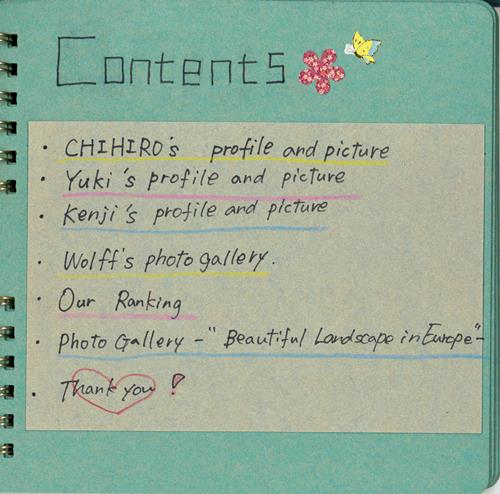 Contents
• CHIHIRO's profile and picture
• Yuki's profile and picture
• Kenji's profile and picture
• Wolff's photo gallery.
• Our Ranking
• Photo Gallery - "Beautiful Landscape in Europe" -
• Thank you!